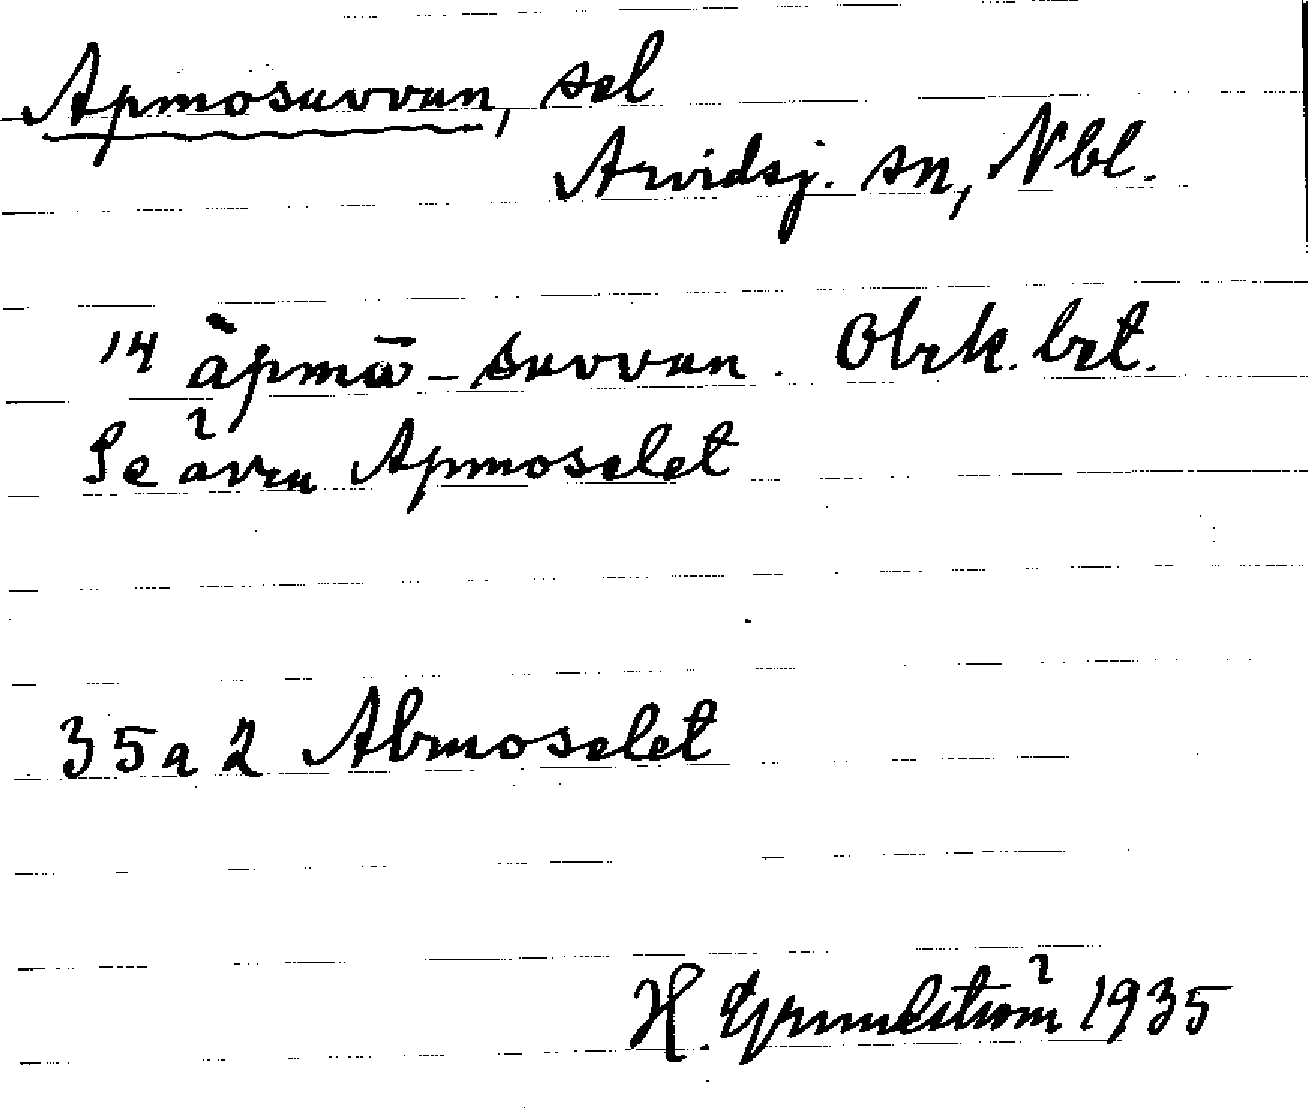 Apmosuvvan, sel
Arvidsj. sn, Nbl.
14 àpmā-suvvan. Obrk. brt.
Se även Apmoselet
35 a 2 Abmoselet
H. Grundström 1935